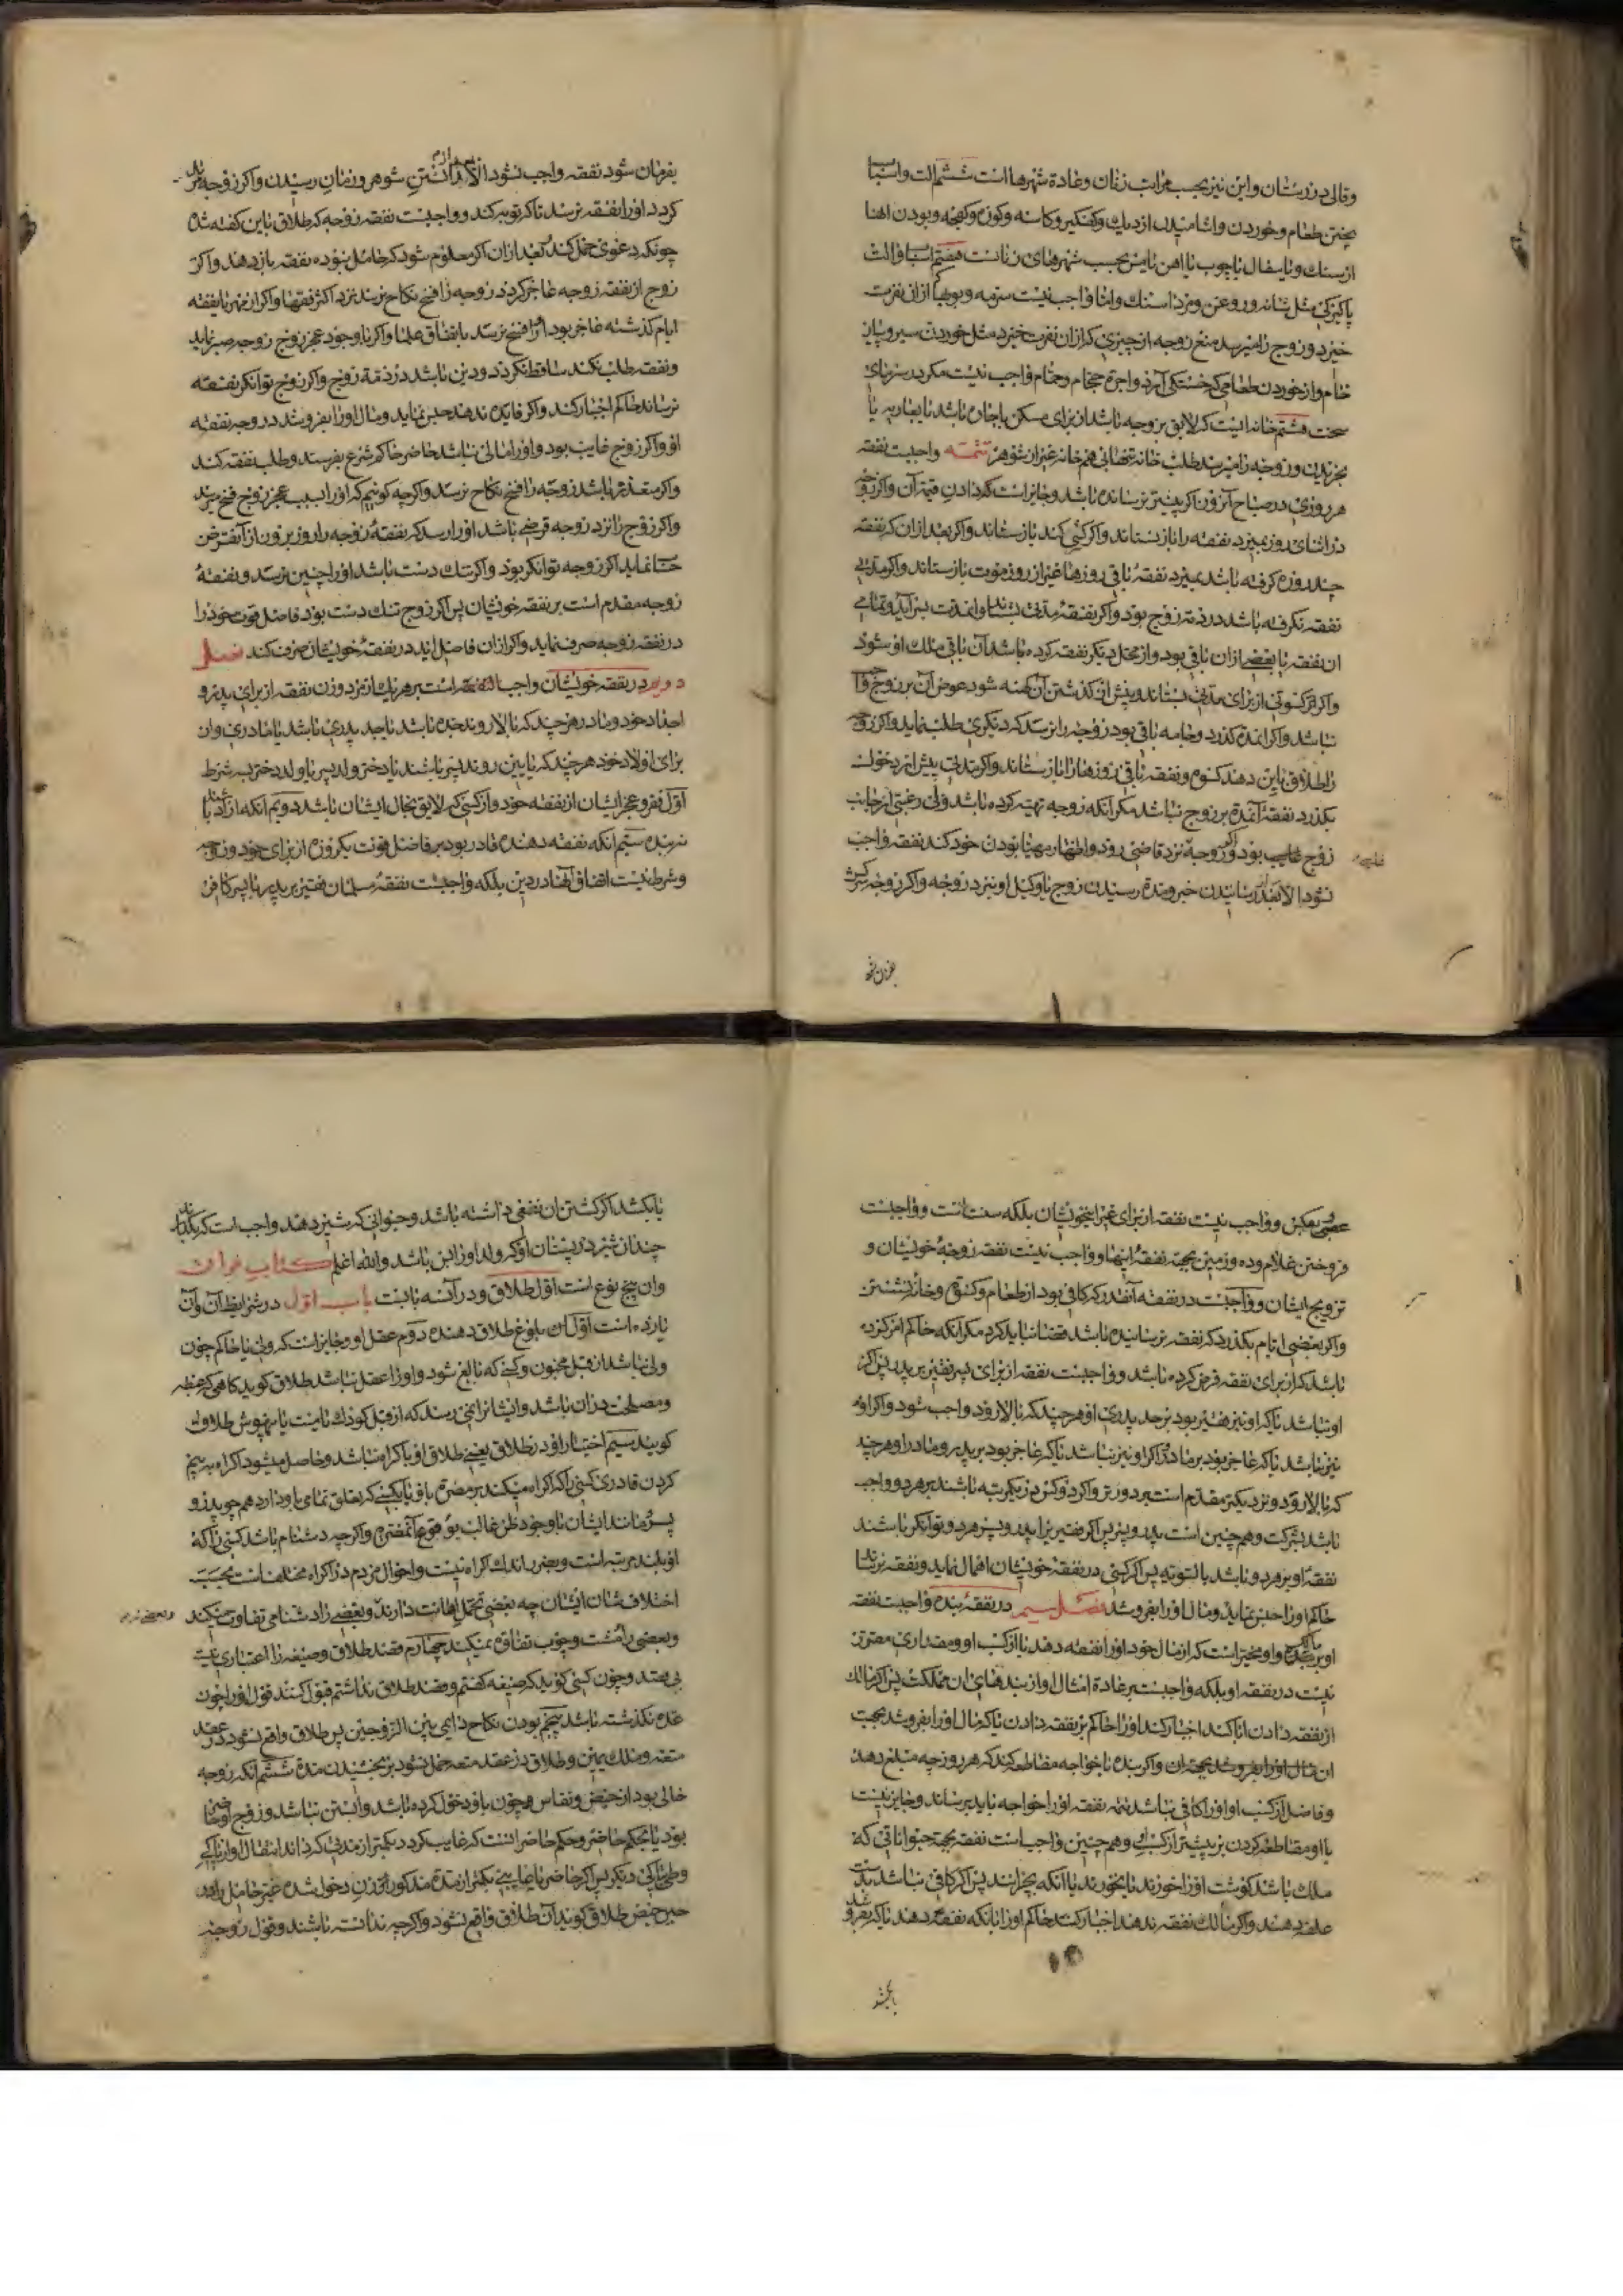 وقالی در زمستان و این نیز بحسب مراتب زنان و عادة شهرها است ششم الت و اسباب
پختن طعام و خوردن و اشامیدن از دیك و كفكیر و كاسه و كوزه و كفچه و بودن اینها
از سنك و یا سفال یا چوب یا اهن یا مس بحسب شهرهای زنانست هفتم اسباب و الت
پاكیزكی مثل شانه و روغن و مزد اسنك و اما واجب نیست سرمه و بویها كه از ان نفرت
خیزد و زوج را میرسد منع زوجه از چیزی كه از ان نفرت خیزد مثل خوردن سیر و پیاز
خام و از خوردن طعامی كه خستكی آرد و اجرة حجام و حمام واجب نیست مكر در سرمای
سخت هشتم خانه ایست كه لایق بزوجه باشد از برای مسكن باجاره باشد یا بعاریه یا
بخریدن و زوجه را میرسد طلب خانه تنهائی هم خانه غیر از شوهر تتمه واجبست نفقه
هر روزی در صباح آنروز اكر پیشتر نرسانده باشد و جایز است كه دادن قیمت آن و اكر زوجه
در اثنای روز بمیرد نفقه را باز نستاند و اكر كمی كند باز ستاند و اكر بعد از ان كه نفقه
چند روزه كرفته باشد بمیرد نفقهٔ باقی روزها غیر از روز موت باز ستاند و اكر مدتی
نفقه نكرفته باشد در ذمه زوج بود و اكر نفقهٔ مدتی بستاند و انمدت بسر آید و تمامی
ان نفقه یا بعضی از ان باقی بود و از محل دیكر نفقه كرده باشد آن باقی ملك او شود
و اكر كسوتی از برای مدتی بستاند و پیش از كذشتن آن كهنه شود عوض آن بر زوج واجب
نباشد و اكر انمدة كذرد و جامه باقی بود زوجه را برسد كه دیكری طلب نماید و اكر زوجه
را طلاق باین دهند كسوه و نفقه باقی روزها را باز ستاند و اكر مدتی پیش از دخول
بكذرد نفقهٔ آنمدة بر زوج نباشد مكر آنكه زوجه تهیه كرده باشد ولی رغبتی از جانب
زوج غایب بود و اكر زوجه نزد قاضی رود و اظهار مهیا بودن خود كند نفقه واجب
نشود الا بعد از رسانیدن خبر و مدة رسیدن زوج یا وكیل او نزد زوجه و اكر زوجه سركش
بفرمان شود
بفرمان شود نفقه واجب نشود الا بعد از دانستن شوهر و زمان رسیدن و اكر زوجه مرتد
كردد او را نفقه نرسد تا كه توبه كند و واجبست نفقه زوجه كه طلاق باین كفته شده
چونكه دعوی حمل كند بعد از ان اكر معلوم شود كه حامل نبوده نفقه باز دهند و اكر
زوج از نفقه زوجه عاجز كردد زوجه را فسخ نكاح نرسد نزد اكثر فقها و اكر از مهر یا نفقه
ایام كذشته عاجز بود او را فسخ نرسد باتفاق علما و اكر با وجود عجز زوج زوجه صبر نماید
و نفقه طلب نكند ساقط نكردد و دین باشد در ذمة زوج و اكر زوج توانكر نفقه
نرساند حاكم اجبار كند و اكر فایده ندهد حبس نماید و مال او را بفروشد در وجه نفقه
او و اكر زوج غایب بود و او را مالی نباشد حاضر حاكم شرع بفرستد و طلب نفقه كند
و اكر متعذر باشد زوجه را فسخ نكاح نرسد و اكر چه كوئیم كه او را بسبب عجز زوج فسخ میرسد
و اكر زوج را نزد زوجه قرضی باشد او را رسد كه نفقهٔ زوجه را روز بروز از آنقرض
حساب نماید اكر زوجه توانكر بود و اكر تنك دست باشد او را چنین نرسد و نفقهٔ
زوجه مقدم است بر نفقه خویشان پس اكر زوج تنك دست بود فاضل قوت خود را
در نفقه زوجه صرف نماید و اكر از ان فاضل اید در نفقهٔ خویشان صرف كند فصل
دویم در نفقه خویشان واجب است بر هر یك از مرد و زن نفقه از برای پدر و
اجداد خود و مادر هر چند كه بالا روند جده باشد یا جد پدری باشد یا مادری و از
برای اولاد خود هر چند كه پایین روند پسر باشند یا دختر ولد پسر یا ولد دختر بسه شرط
اول فقر و عجز ایشان از نفقه خود و از كسبی كه لایق بحال ایشان باشد دویم آنكه ازاد باشند
نه بنده سیم آنكه نفقه دهنده قادر بود بر فاضل قوت یكروزه از برای خود و زوجه
و شرط نیست اتفاق آنها در دین بلكه واجبست نفقهٔ مسلمان فقیر بر پدر یا پسر كافر
و واجب نیست نفقه از برای غیر اینخویشان بلكه سنت است و واجبست
فروختن غلام و ده و زمین بجهة نفقهٔ اینها و واجب نیست نفقه زوجهٔ خویشان و
تزویج ایشان و واجبست در نفقه آنقدر كه كافی بود از طعام و كسوة و خانه نشستن
و اكر بعضی ایام بكذرد كه نفقه نرسانیده باشد قضا نباید كرد مكر آنكه حاكم امر كرده
باشد كه از برای نفقه قرض كرده باشد و واجبست نفقه از برای پسر فقیر بر پدر پس اكر
او نباشد یا كه او نیز فقیر بود بر جد پدری او هر چند كه بالا رود واجب شود و اكر او
نیز نباشد یا كه عاجز بود بر مادر و اكر او نیز نباشد یا كه عاجز بود بر پدر و مادر او هر چند
كه بالا رود و نزدیكتر مقدم است بر دورتر و اكر دو كس در یكمرتبه باشند بر هر دو واجب
باشد بشركت و هم چنین است پدر و پسر پس اكر فقیر یرا پدر و پسر هر دو توانكر باشند
نفقهٔ او بر هر دو باشد بالسویه پس اكر كسی در نفقهٔ خویشان اهمال نماید و نفقه نرساند
حاكم او را حبس نماید و مال او را بفروشد فصل سیم در نفقهٔ بنده واجبست نفقه
و او مخیر است كه از مال خود او را نفقه دهد یا از كسب او و مقداری مقرر
نیست در نفقه او بلكه واجبست بر عادة امثال او از بندهای ان مملكت پس اكر مالك
از نفقه دادن ابا كند اجبار كند او را حاكم بر نفقه دادن یا كه مال او را بفروشد بجهت
ان مال او را بفروشد بجهة ان و اكر بنده با خواجه مقاطعه كند كه هر روز چه مبلغ دهد
و فاضل از كسب او او را كافی نباشد تتمه نفقه او را خواجه باید برساند و جایز نیست
با او مقاطعه كردن بر بیشتر از كسب و هم چنین واجب است نفقه بجهة حیواناتی كه
ملك باشد كوشت او را خورند یا نخورند یا آنكه بچرانند پس اكر كافی نباشد
علف دهند و اكر مالك نفقه ندهد اجبار كند حاكم او را بانكه نفقه دهند یا كه بفروشد
یا بكشد
یا بكشد اكر كشتن ان نفعی داشته باشد و حیوانی كه شیر دهد واجب است كه بكذارند
چندان شیر در پستان او كه ولد او را بس باشد و الله اعلم كتاب فراق
وان پنج نوع است اول طلاق و در آن سه بابست باب اول در شرایط آن و آن
یازده است اول بلوغ طلاق دهنده دوم عقل او و جایز است كه ولی یا حاكم چون
ولی نباشد از قبل مجنون و كسی كه بالغ شود و او را عقل نباشد طلاق كوید كاهی كه غبطه
و مصلحت در ان باشد و ایشانرا نمی رسد كه از قبل كودك یا مست یا بیهوش طلاق
كویند سیم اختیار او در طلاق یعنی طلاق او باكراه نباشد و حاصل میشود اكراه به بیم
كردن قادری كسی را كه اكراه میكند بر مضرة باو یا بكسی كه تعلق تمامی باو دارد هم چو پدر و
پسر و مانند ایشان با وجود ظن غالب بوقوع آنمضرة و اكر چه دشنام باشد كسی را كه
او بلند مرتبه است و بضرر اندك اكراه نیست و احوال مردم در اكراه مختلف است بحسب
اختلاف شان ایشان چه بعضی تحمل اهانت دارند و بعضی را دشنامی تفاوت میكند
و بعضی را مشت و چوب تفاوت نمیكند چهارم قصد طلاق و صیغه را اعتباری نیست
بی قصد و چون كسی كوید كه صیغه كفتم و قصد طلاق نداشتم قبول كنند قول او را چون
عده نكذشته باشد پنجم بودن نكاح دایمی بین الزوجین پس طلاق واقع نشود در عقد
متعه و ملك یمین و طلاق در عقد متعه حمل شود بر بخشیدن مدة ششم آنكه زوجه
خالی بود از حیض و نفاس هم چون باو دخول كرده باشد و آبستن نباشد و زوج او حاضر
بود یا بحكم حاضر و حكم حاضر است كه غایب كردد بكمتر از مدتی كه داند انتقال او از پاكی
وطی بپاكی دیكر پس اكر حاضر یا غایبی بكمتر از مدة مذكوره زن دخول شده غیر حامل را در
حین حیض طلاق كوید آن طلاق واقع نشود و اكر چه ندانسته باشند و قول زوجه